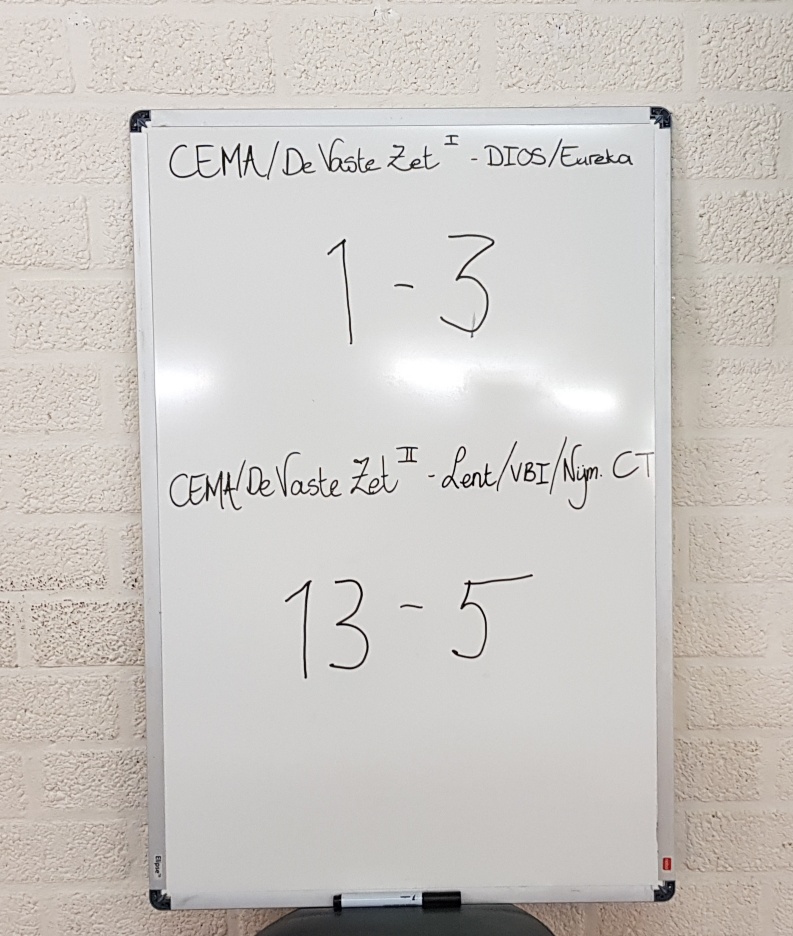 CEMA/De Vaste Zet I - DIOS/Eureka
1 - 3
CEMA/De Vaste Zet II - Lent/VBI/Nijm. CT
13 - 5
Elipse